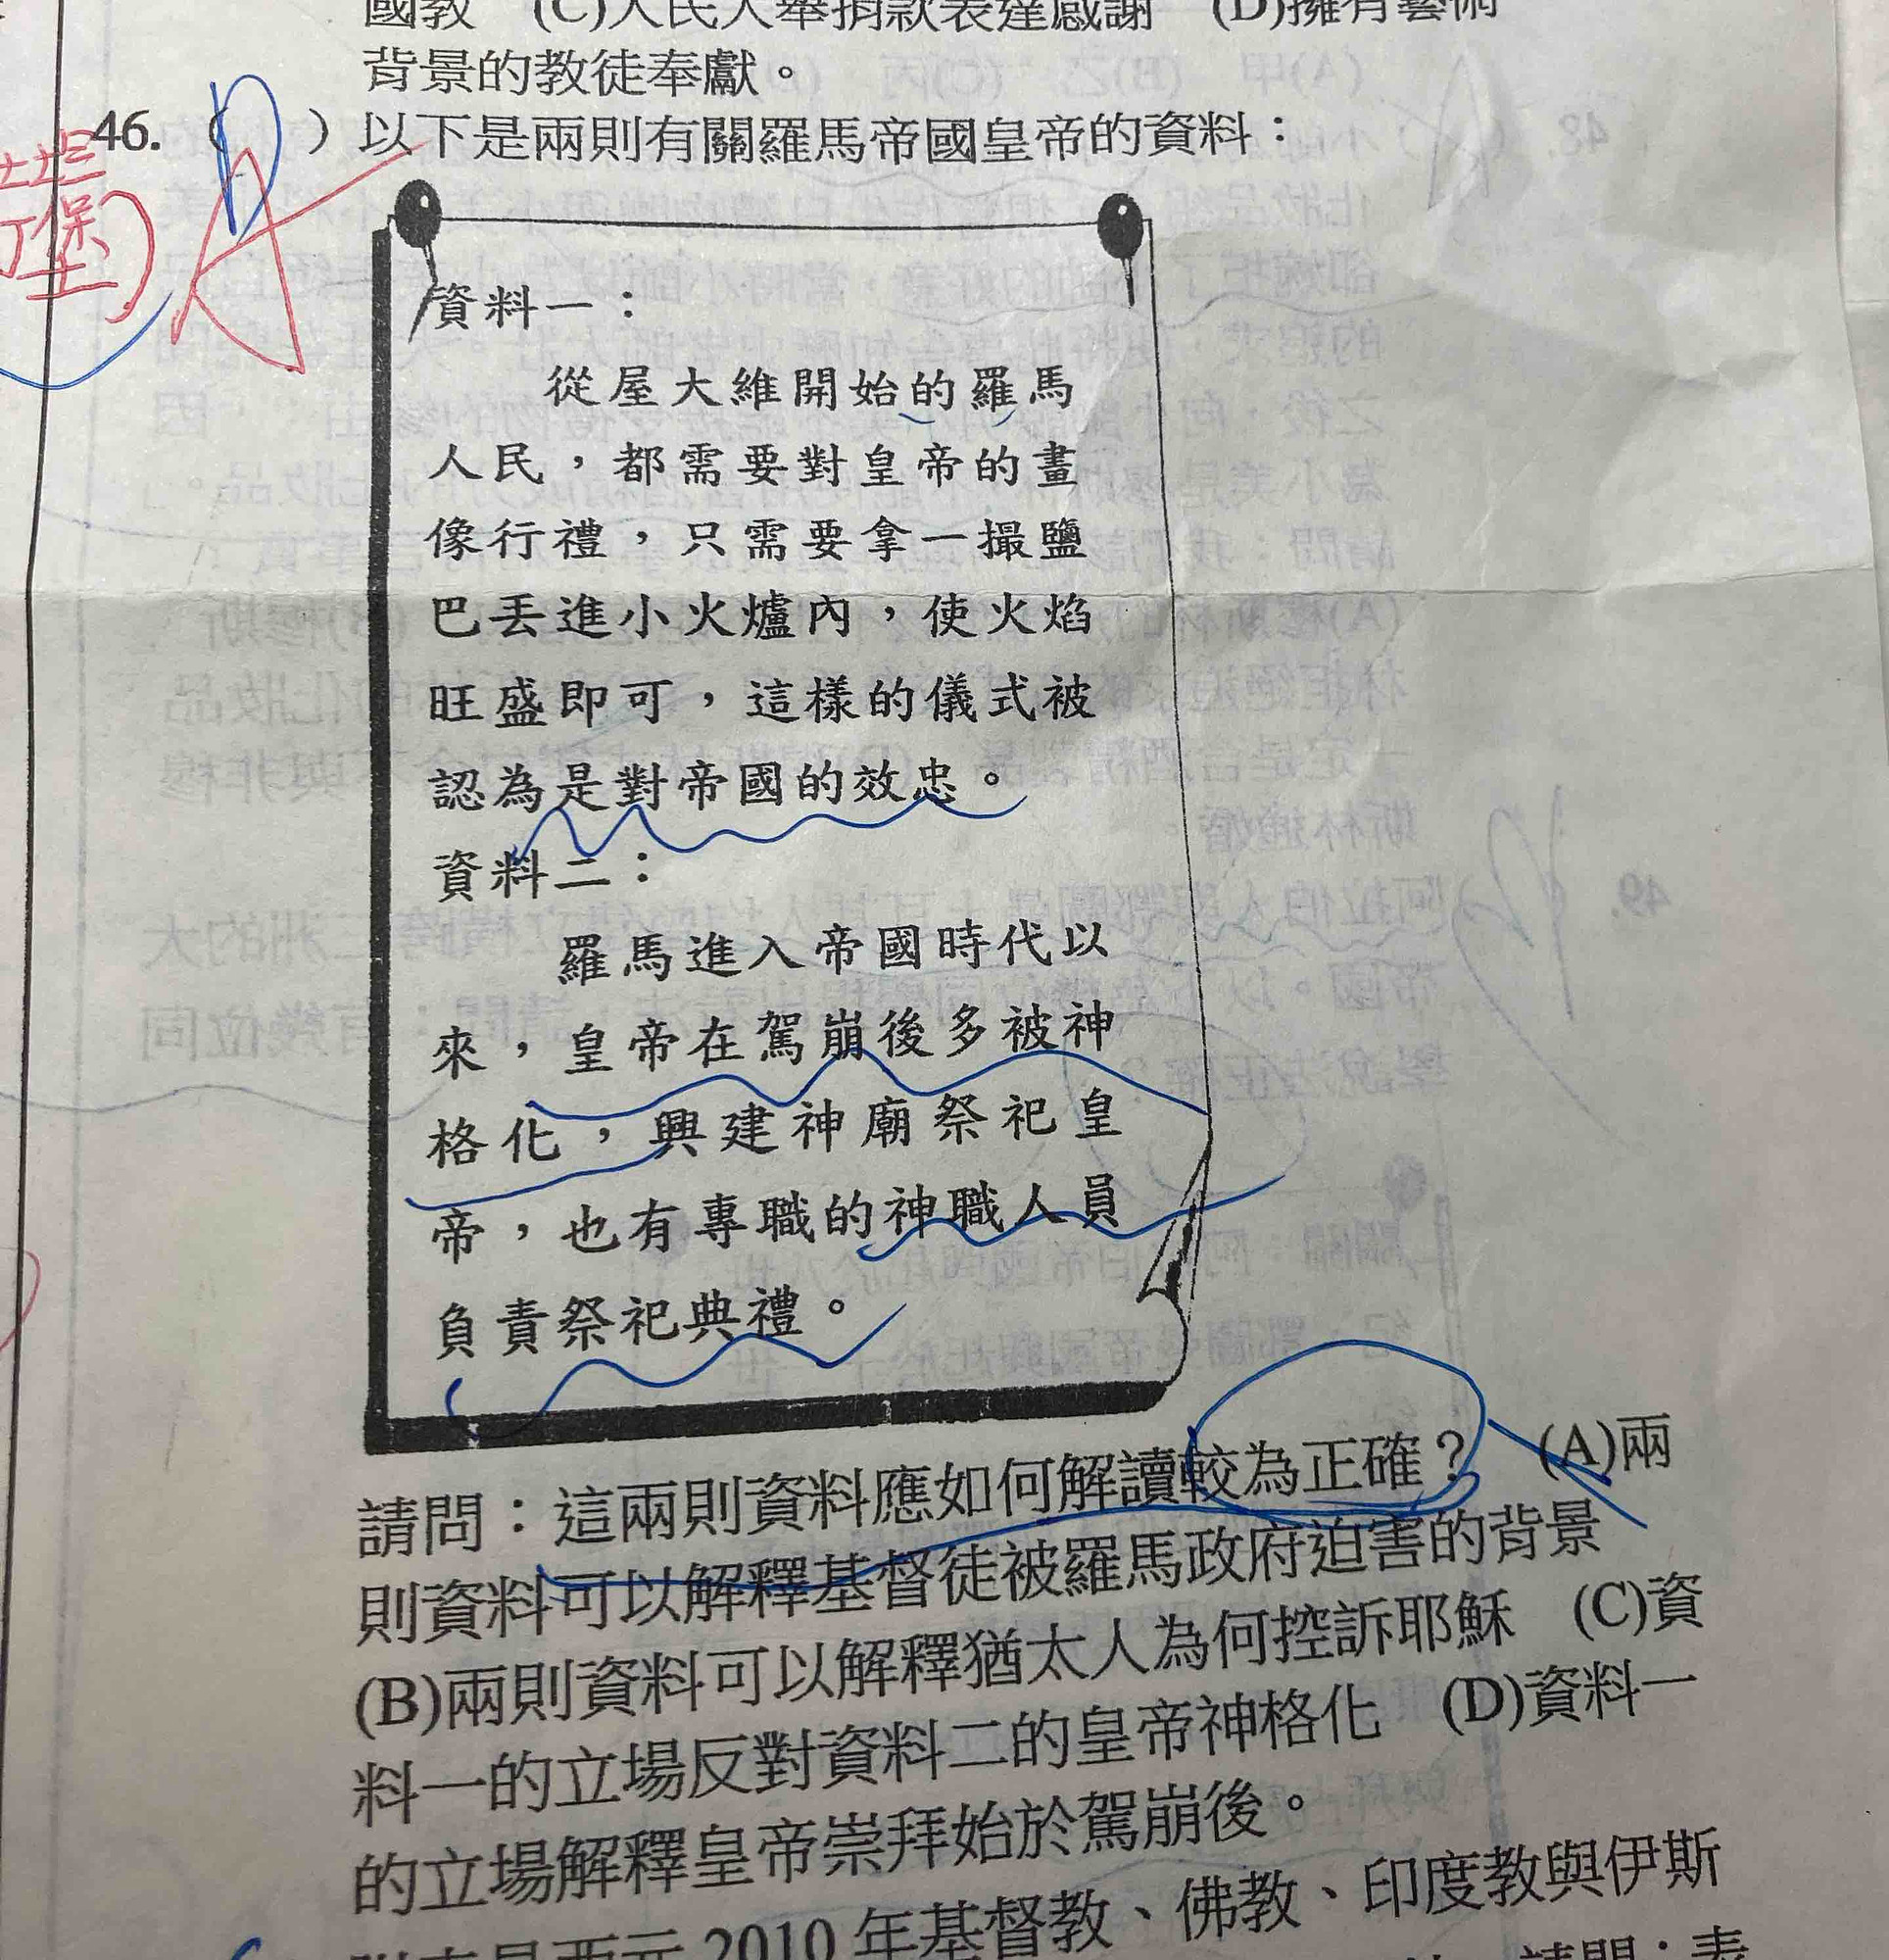 國教 (C)人民大舉捐款表達感謝 (D)擁有藝術
背景的教徒奉獻。
46. ( D ) 以下是兩則有關羅馬帝國皇帝的資料：
A
資料一：
從屋大維開始的羅馬
人民，都需要對皇帝的畫
像行禮，只需要拿一撮鹽
巴丟進小火爐內，使火焰
旺盛即可，這樣的儀式被
認為是對帝國的效忠。
資料二：
羅馬進入帝國時代以
來，皇帝在駕崩後多被神
格化，興建神廟祭祀皇
帝，也有專職的神職人員
負責祭祀典禮。
請問：這兩則資料應如何解讀較為正確？ (A)兩
則資料可以解釋基督徒被羅馬政府迫害的背景
(B)兩則資料可以解釋猶太人為何控訴耶穌 (C)資
料一的立場反對資料二的皇帝神格化 (D)資料一
的立場解釋皇帝崇拜始於駕崩後。
2010 年基督教、佛教、印度教與伊斯
請問：表